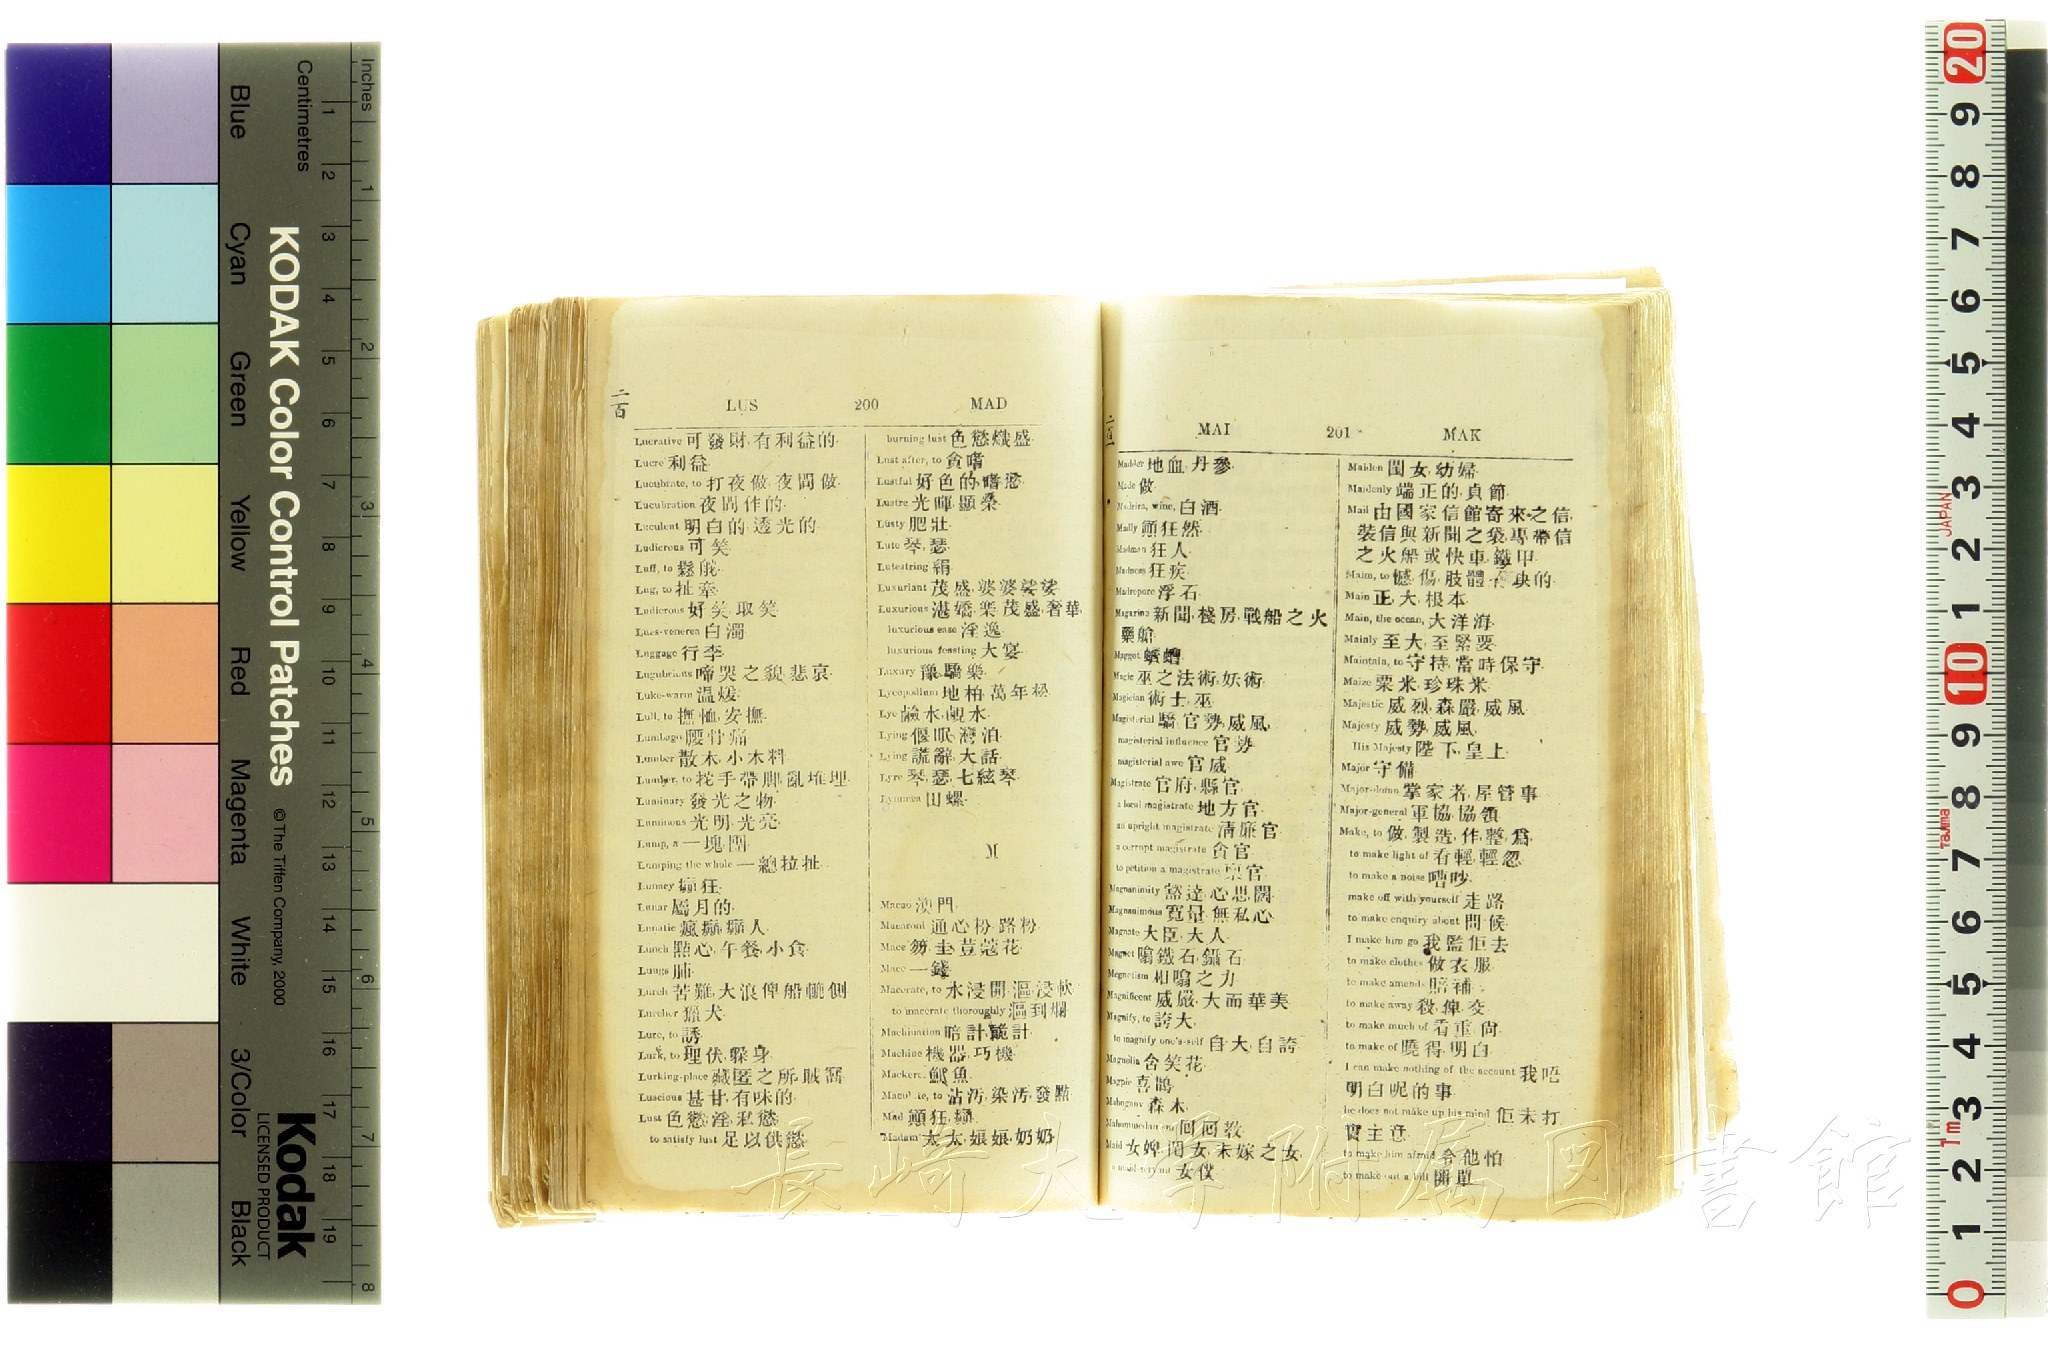 二百
LUS 200 MAD
Lucrative 可發財,有利益的.
Lucre 利益.
Lucubrate, to 打夜做,夜間做.
Lucubration 夜間作的.
Luculent 明白的,透光的.
Ludicrous 可笑.
Luff, to 鬆
Lug, to 扯牽.
Ludicrous 好笑,取笑.
Lues-venerea 白濁
Luggage 行李.
Lugubrious 啼哭之貌,悲哀.
Luke-warm 温煖.
Lull, to 撫恤,安撫.
Lumbago 腰骨痛.
Lumber 散木,小木料.
Lumber, to 手帶脚,亂堆埋.
Luminary 發光之物.
Luminous 光明,光亮.
Lump, a 一塊團.
Lumping the whole 一總拉扯.
Lunacy 狂.
Lunar 屬月的.
Lunatic 瘋癲,癲人.
Lunch 點心,午餐,小食.
Lungs 肺.
Lurch 苦難,大浪俾船側
Lurcher 獵犬.
Lure, to 誘
Lurk, to 埋伏,躱身.
Lurking-place 藏匿之所,賊窩.
Luscious 甚甘,有味的.
Lust 色慾,淫,私慾.
to satisfy lust 足以供慾.
burning lust 色慾熾盛.
Lust after, to 貪嗜
Lustful 好色的,嗜慾.
Lustre 光暉,顯榮.
Lusty 肥壯.
Lute 琴,瑟.
Lutestring 絹.
Luxuriant 茂盛,婆婆娑娑.
Luxurious 湛嬌,樂,茂盛,奢華.
luxurious ease 淫逸.
luxurious feasting 大宴.
Luxury 豫,驕樂.
Lycopodium 地柏,萬年松.
Lye 鹼水,梘水.
Lying 偃眠,灣泊.
Lying 謊辭,大話.
Lyre 琴,瑟,七絃琴.
田螺.
M
Macao 澳門.
Macaroni 通心粉,路粉.
Mace 笏,圭,荳蔻花.
Mace 一錢.
Macerate, to 水浸開,漚,浸軟
to macerate thoroughly 漚到爛
Machination 暗計,詭計.
Machine 機器,巧機.
Mackerel 魚.
to 沾汚,染汚,發點.
Mad 顚狂,癲.
Madam 太太,娘娘,奶奶.
MAI 201 MAK
Madder 地血,丹參.
Made 做.
Madeira, wine, 白酒.
Madly 顚狂然.
Madman 狂人.
Madness 狂疾.
Madrepore 浮石.
Magazine 新聞,棧房,戰船之火
藥艙
Maggot 蛆螬.
Magic 巫之法術,妖術.
Magician 術士,巫.
Magisterial 驕,官勢,威風.
magisterial influence 官勢.
magisterial awe 官威.
Magistrate 官府,縣官.
a local magistrate 地方官.
an upright magistrate 清廉官.
a corrupt magistrate 貪官.
to petition a magistrate 禀官.
Magnanimity 豁達,心思闊.
Magnanimous 寬量,無私心.
Magnate 大臣,大人.
Magnet 噏鐵石,鑷石.
Megnetism 相噏之力.
Magnificent 威嚴,大而華美
Magnify, to 誇大.
to magnify one's-self 自大,自誇.
Magnolia 含笑花.
Magpie 喜鵲.
Mahogany 森木.
Mahommedan 回回敎.
Maid 女婢,閨女,未嫁之女.
a maid-servant 女僕
Maiden 閨女,幼婦.
Maidenly 端正的,貞節.
Mail 由國家信館寄來之信,
裝信與新聞之袋,專帶信
之火船或快車,鐵甲.
Maim, to 憾,傷,肢體有缺的.
Main 正,大,根本.
Main, the ocean, 大洋海.
Mainly 至大,至緊要.
Maintain, to 守持,當時保守.
Maize 粟米,珍珠米.
Majestic 威烈,森嚴,威風.
Majesty 威勢,威風.
His Majesty 陛下,皇上.
Major 守備.
Major-domo 掌家者,屋管事
Major-general 軍協,協領.
Make, to 做,製造,作,整,爲.
to make light of 看輕,輕忽.
to make a noise 嘈吵.
make off with yourself 走路.
to make enquiry about 問候.
I make him go 我監佢去
to make clothes 做衣服.
to make amends 賠補.
to make away 殺,
to make much of 看重,尙.
to make of 曉得,明白.
I can make nothing of the account 我唔
明白呢的事.
he does not make up his mind 佢未打
實主意.
to make him afraid 令他怕
to make out a bill 開單.
KODAK Color Control Patches
© The Tiffen Company, 2000
Kodak
LICENSED PRODUCT
Inches 1 2 3 4 5 6 7 8
Centimetres 1 2 3 4 5 6 7 8 9 10 11 12 13 14 15 16 17 18 19
Blue Cyan Green Yellow Red Magenta White 3/Color Black
20 9 8 7 6 5 4 3 2 1 10 9 8 7 6 5 4 3 2 1 0
JAPAN
Tajima
1m
長崎大学附属図書館